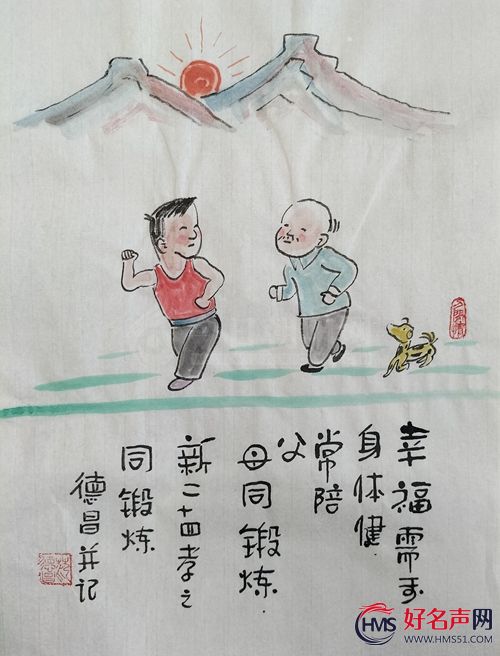 幸福需要
身体健
常陪
父
母同锻炼
新二十四孝之
同锻炼
德昌并记
HMS 好名声网
WWW.HMS51.COM